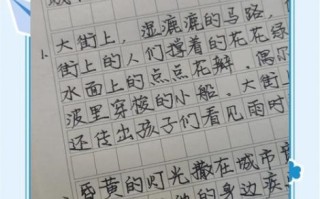 1. 大街上，湿漉漉的马路，
街上的人们撑着的花花绿
水面上的点点花瓣，偶尔
波里穿梭的小船。大街上
还传出孩子们看见雨时
昏黄的灯光撒在城市
的身边疾